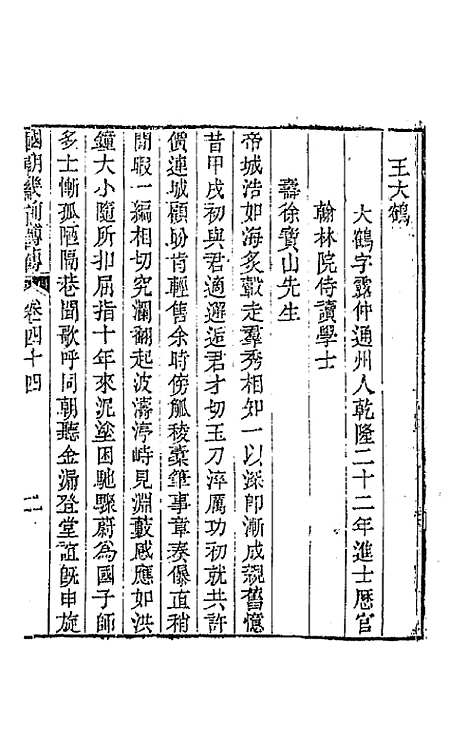 王大鶴
大鶴字露仲通州人乾隆二十二年進士歷官
翰林院侍讀學士
壽徐賓山先生
帝城浩如海炙轂走羣秀相知一以深即漸成親舊憶
昔甲戌初與君適邂逅君才切玉刀淬厲功初就共許
價連城顧盼肯輕售余時傍觚稜橐筆事章奏儤直稍
閒暇一編相切究瀾翻起波濤渟峙見淵藪感應如洪
鐘大小隨所扣屈指十年來泥塗困馳驟蔚為國子師
多士慚孤陋隔巷聞歌呼同朝聽金漏登堂誼旣申旋
國朝畿輔詩傳 卷四十四 二